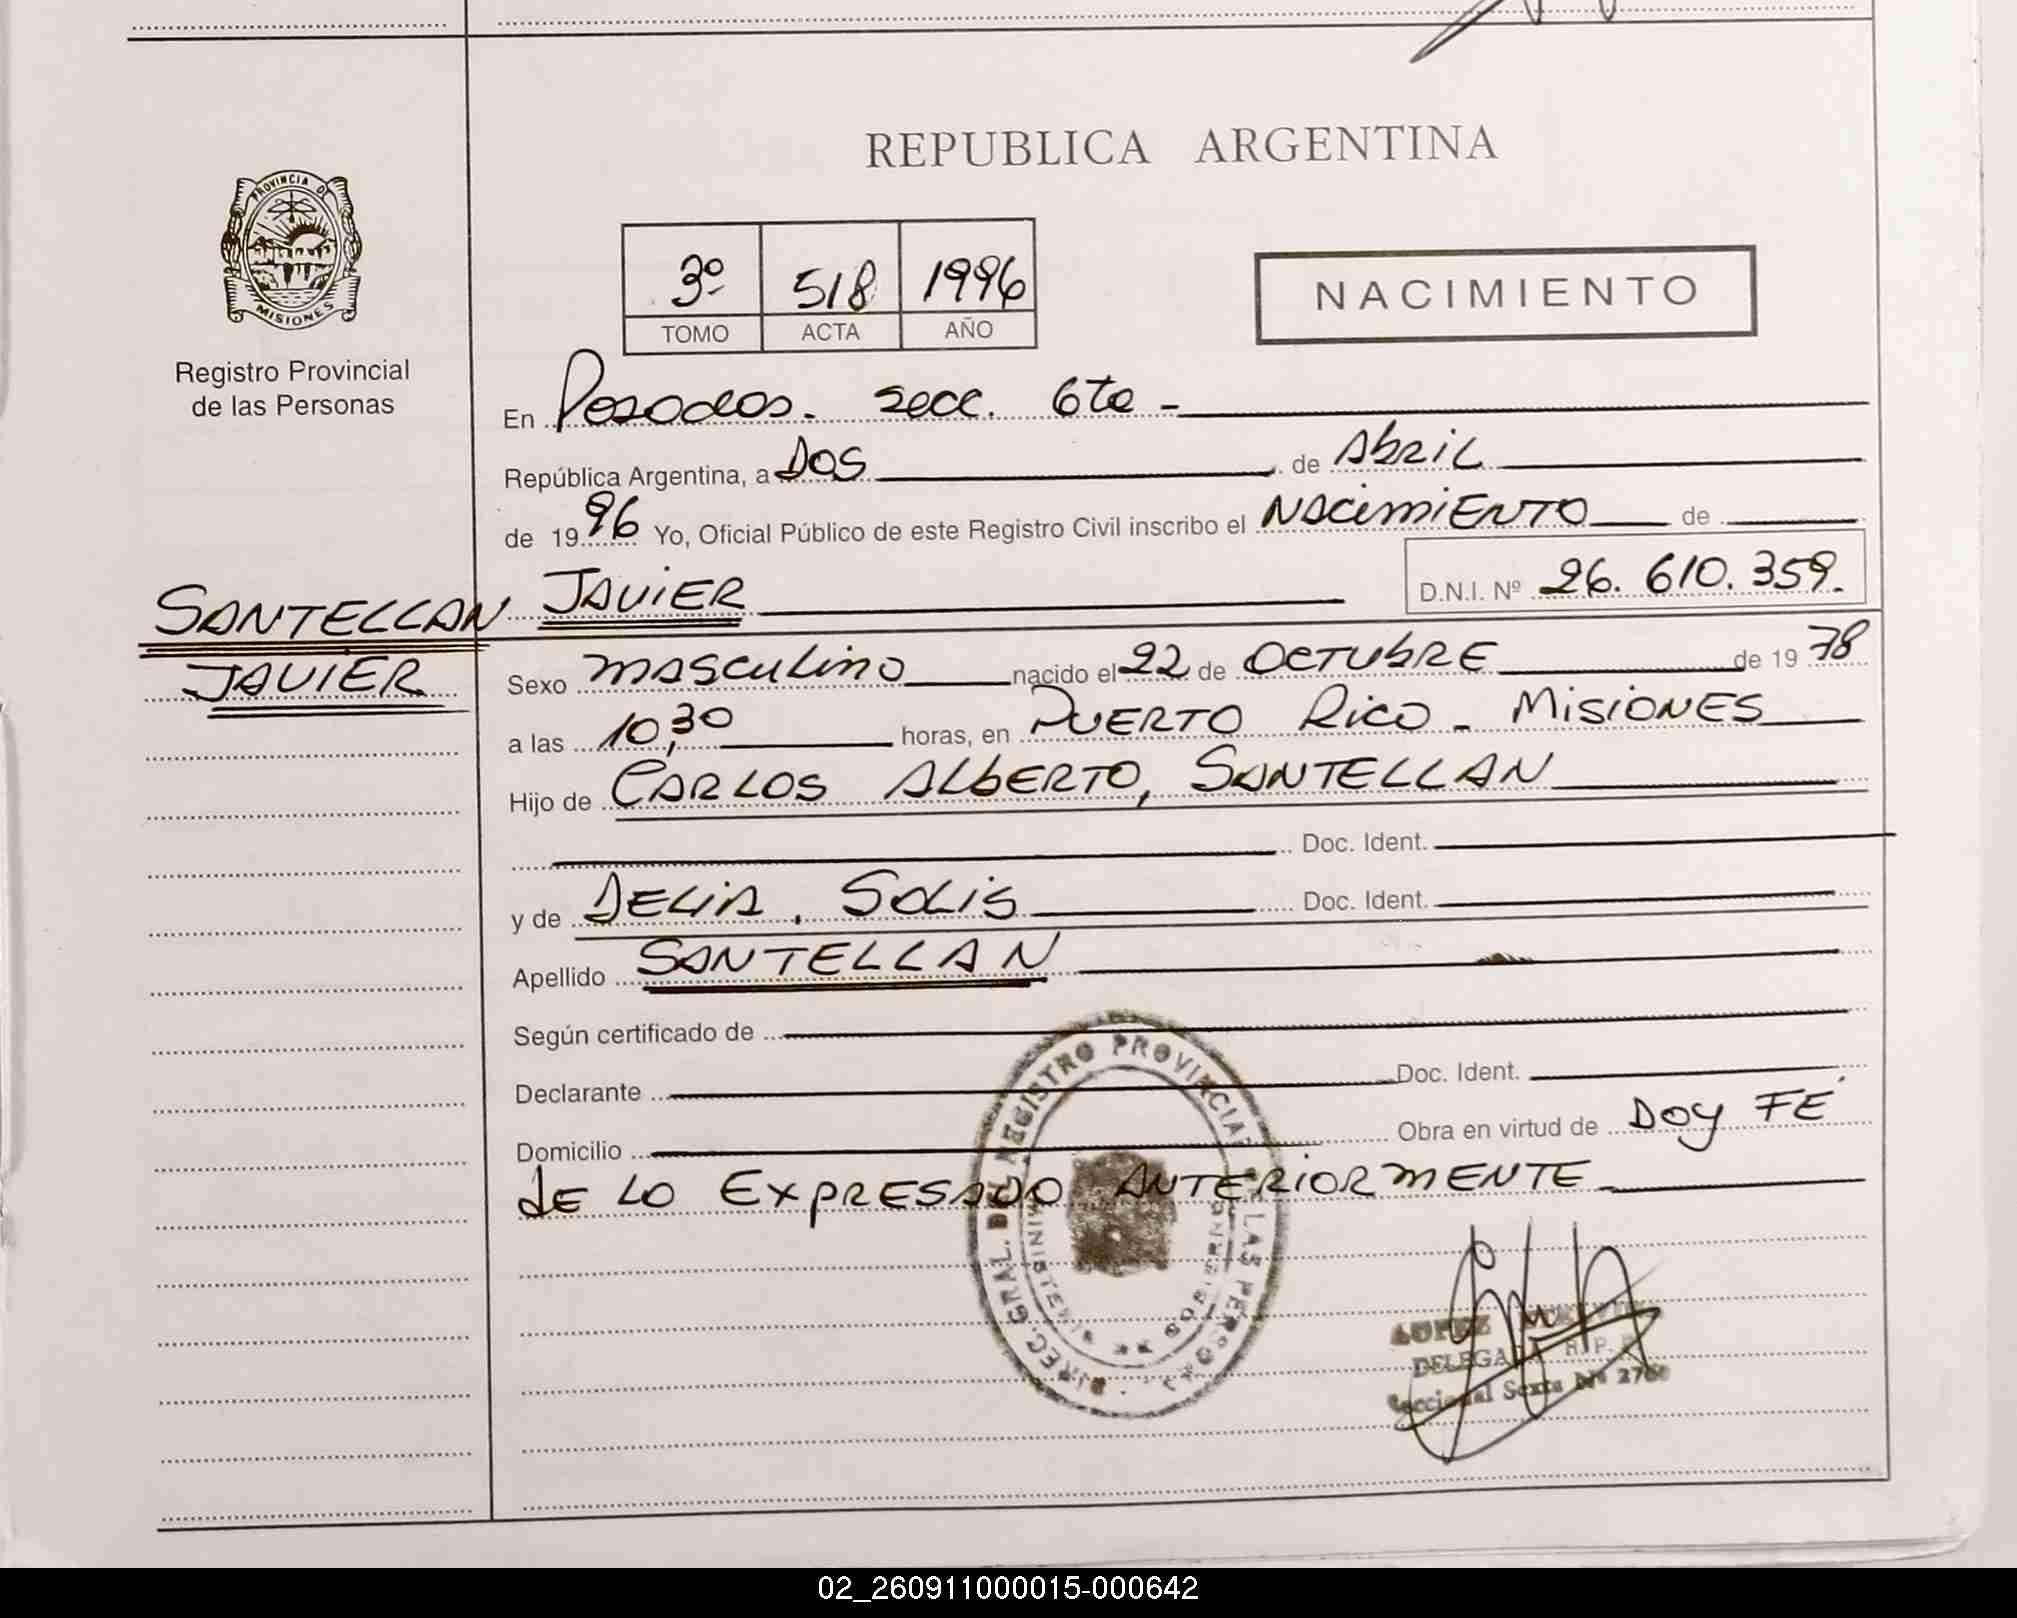 REPUBLICA ARGENTINA
PROVINCIA DE
MISIONES
Registro Provincial
de las Personas
3º 518 1996
TOMO ACTA AÑO
NACIMIENTO
En Posadas. secc. 6ta -
República Argentina, a Dos de Abril
de 1996 Yo, Oficial Público de este Registro Civil inscribo el NACIMIENTO de
SANTELLAN JAVIER D.N.I. Nº 26.610.359.
JAVIER
Sexo masculino nacido el 22 de OCTUBRE de 1978
a las 10,30 horas, en PUERTO RICO - MISIONES
Hijo de CARLOS ALBERTO, SANTELLAN
Doc. Ident.
y de DELIA, SOLIS Doc. Ident.
Apellido SANTELLAN
Según certificado de
Declarante Doc. Ident.
Domicilio Obra en virtud de DOY FÉ
de LO EXPRESADO ANTERIORMENTE
DIREC. GRAL. DEL REGISTRO PROVINCIAL DE LAS PERSONAS
LOPEZ
DELEGADA R.P.P.
Seccional Sexta Nº
02_260911000015-000642